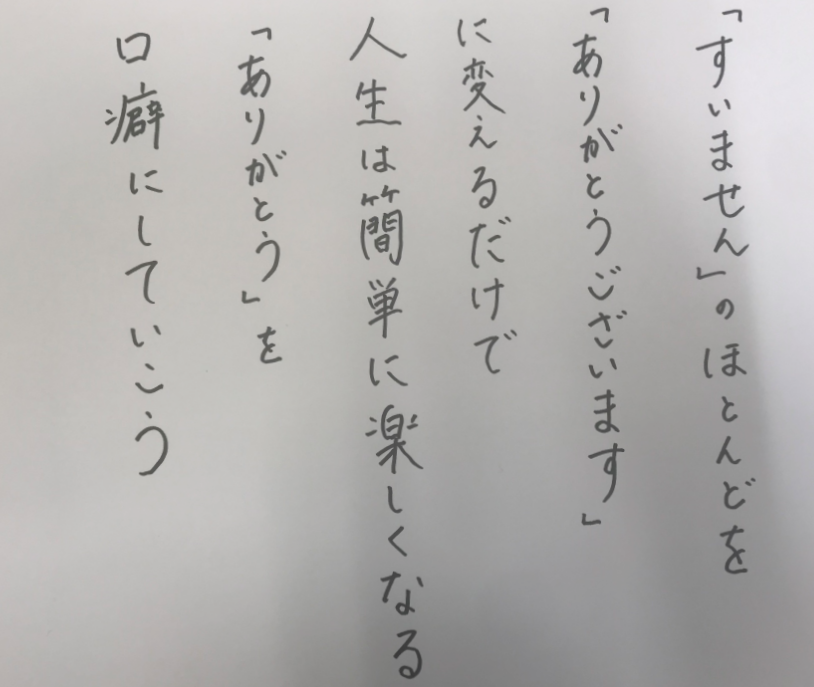 「すいません」のほとんどを
「ありがとうございます」
に変えるだけで
人生は簡単に楽しくなる
「ありがとう」を
口癖にしていこう